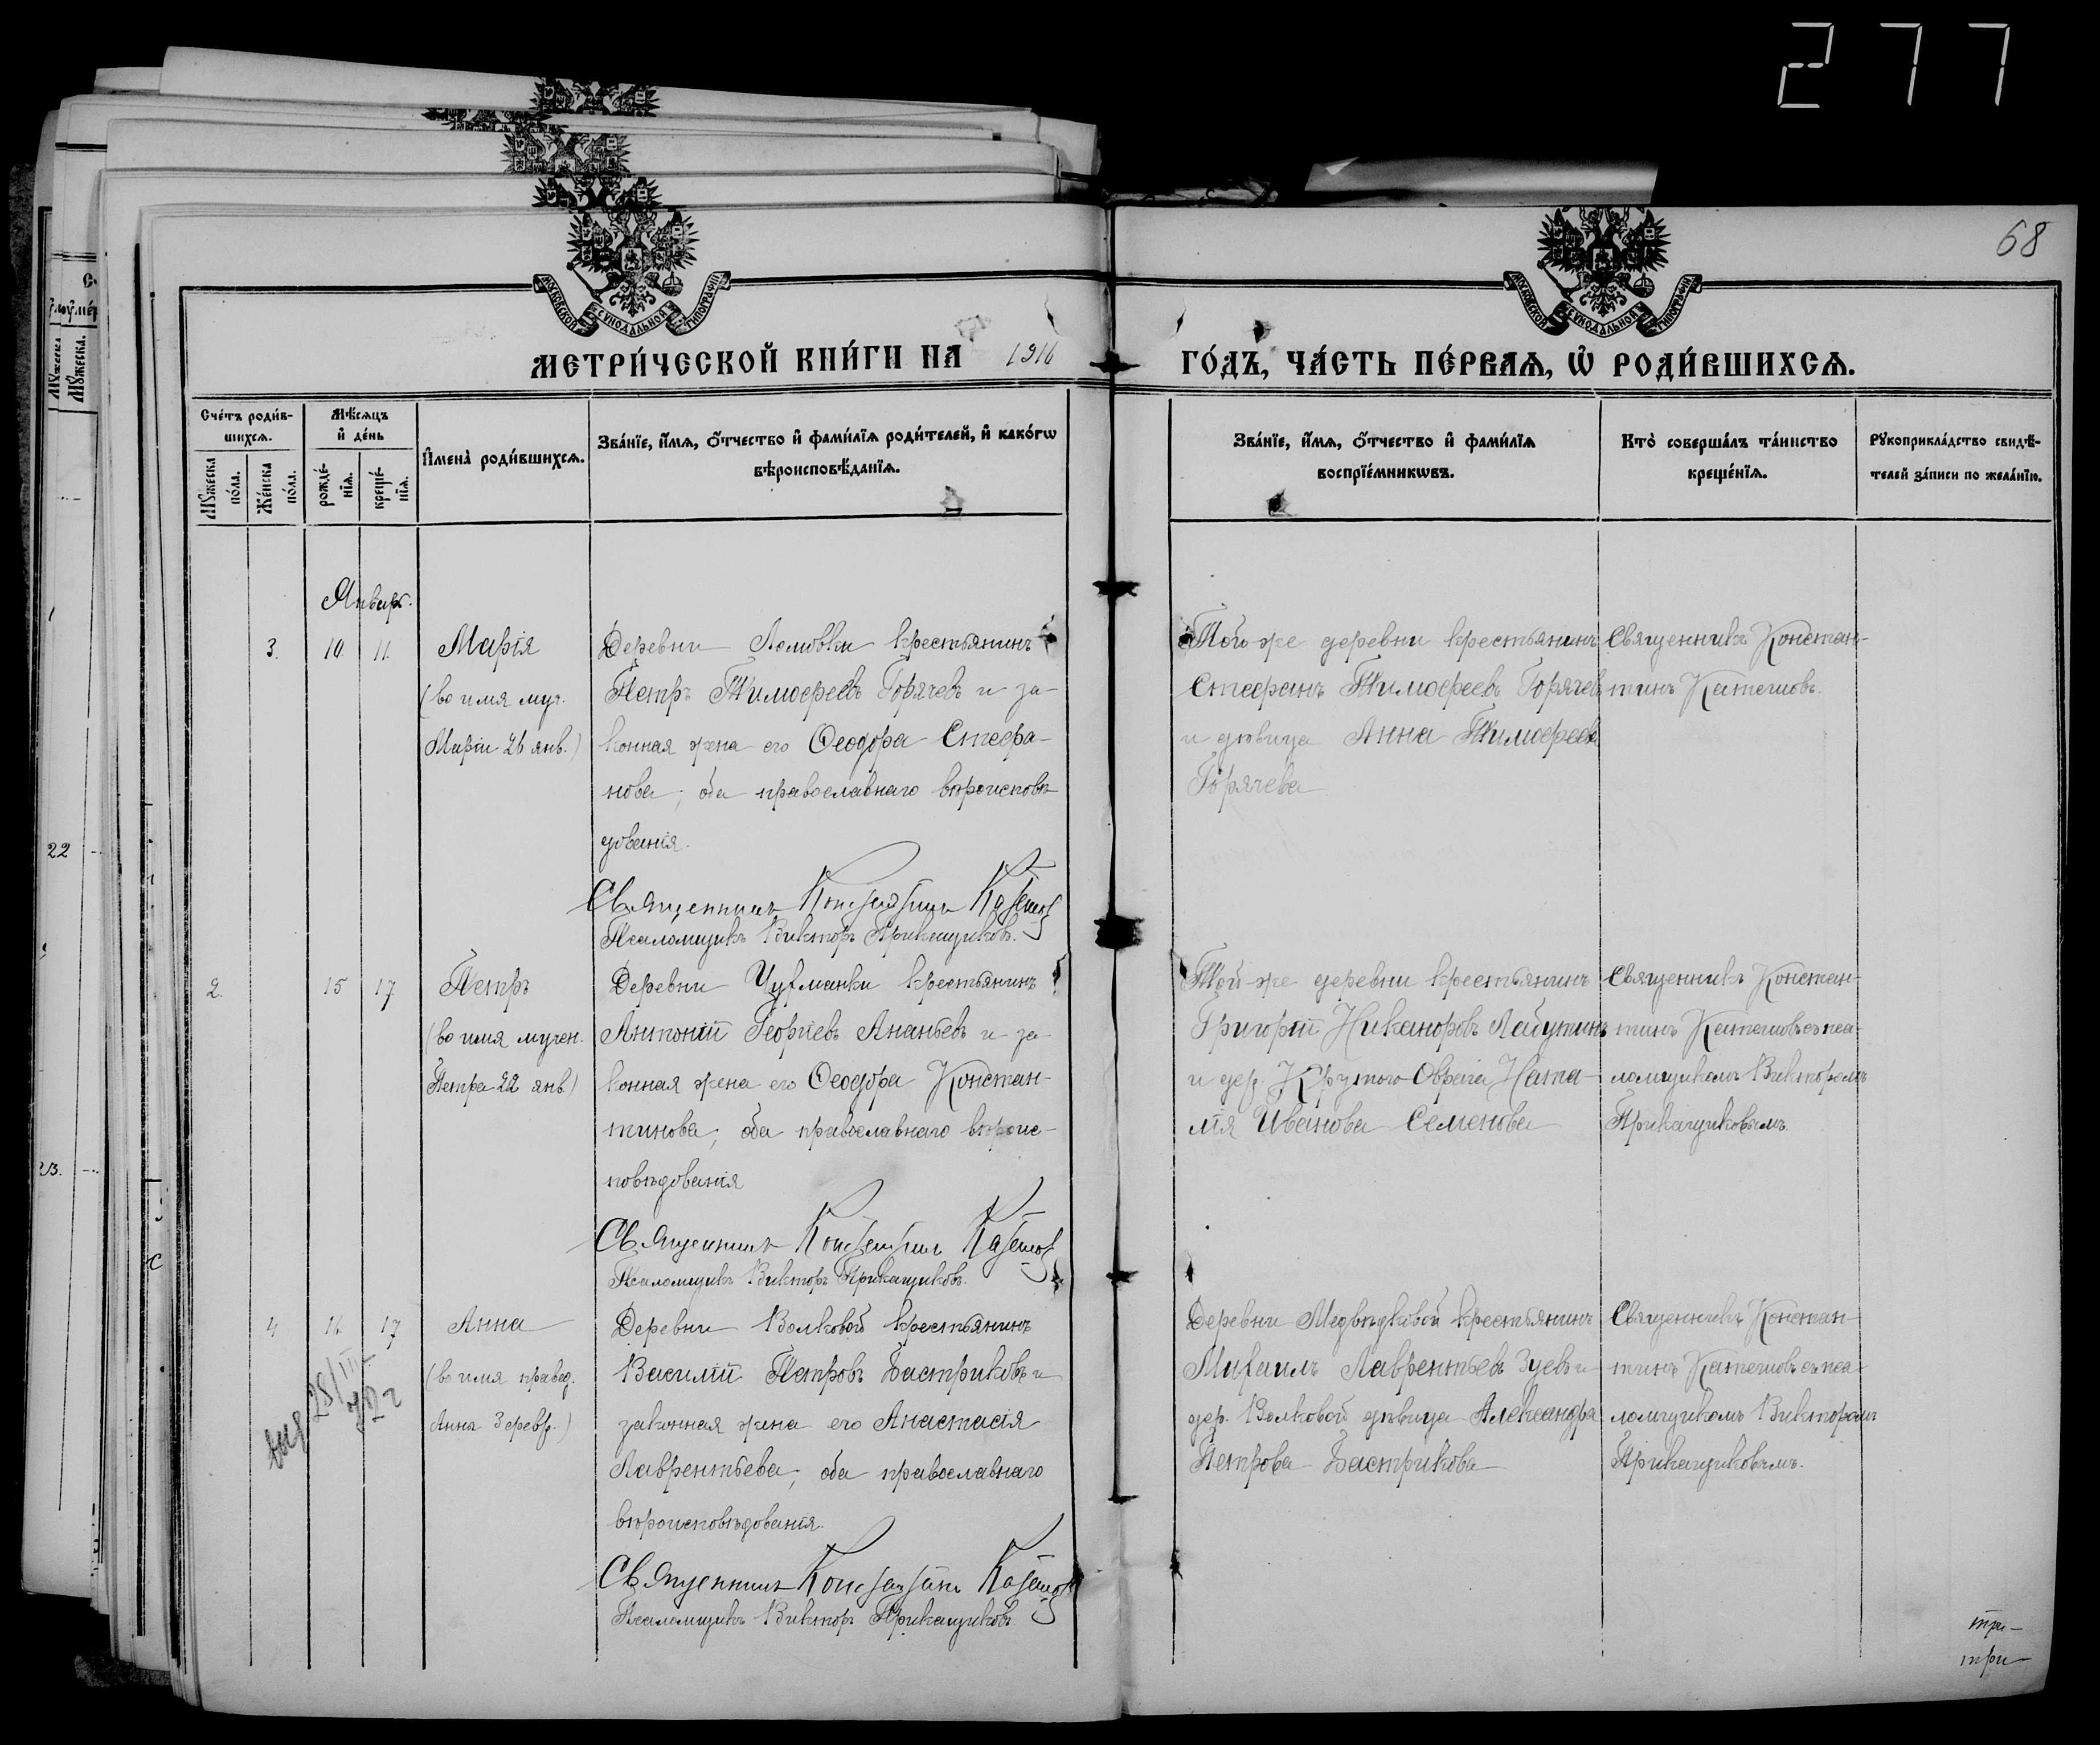 277
68
МОСКОВСКОЙ СѴНОДАЛЬНОЙ ТИПОГРАФІИ
МОСКОВСКОЙ СѴНОДАЛЬНОЙ ТИПОГРАФІИ
МЕТРИ́ЧЕСКОЙ КНИ́ГИ НА 1916 ГО́ДЪ, ЧА́СТЬ ПЕ́РВАѦ, Ѽ РОДИ́ВШИХСѦ.
Сче́тъ роди́в-
шихсѧ.
Мѹ́жеска
по́ла.
Же́нска
по́ла.
Мѣ́сѧцъ
и҆ де́нь
рожде́-
нїѧ.
креще́-
нїѧ.
И҆мена̀ роди́вшихсѧ.
Зва́нїе, и҆́мѧ, ѻ҆́тчество и҆ фами́лїѧ роди́телей, и҆ како́гѡ
вѣроисповѣ́данїѧ.
Зва́нїе, и҆́мѧ, ѻ҆́тчество и҆ фами́лїѧ
воспрїе́мникѡвъ.
Кто̀ соверша́лъ та́инство
креще́нїѧ.
Рѹкоприкла́дство свидѣ́-
телей за́писи по жела́нїю.
Январь.
3. 10. 11. Марія
(во имя муч.
Маріи 26 янв.)
Деревни Ломовки крестьянинъ
Петръ Тимофеевъ Горячевъ и за-
конная жена его Ѳеодора Стефа-
нова; оба православнаго вѣроисповѣ-
дованія.
Священникъ Константинъ Катешов
Псаломщикъ Викторъ Прикащиковъ.
Той-же деревни крестьянинъ
Стефанъ Тимофеевъ Горячев
и дѣвица Анна Тимофеева
Горячева
Священникъ Констан-
тинъ Катешовъ.
2. 15 17 Петръ
(во имя мучен.
Петра 22 янв.)
Деревни Чухманки крестьянинъ
Антоній Георгіевъ Ананьевъ и за-
конная жена его Ѳеодора Констан-
тинова; оба православнаго вѣроис-
повѣдованія
Священникъ Константинъ Катешов
Псаломщикъ Викторъ Прикащиковъ.
Той-же деревни крестьянинъ
Григорій Никаноровъ Лабутинъ
и дер. Крутого Оврага Ната-
лія Иванова Семенова
Священникъ Констан-
тинъ Катешовъ съ пса-
ломщикомъ Викторомъ
Прикащиковымъ.
4 16 17 Анна
(во имя правед.
Анна 3 февр.)
28/III
Деревни Волковой крестьянинъ
Василій Петровъ Бастриковъ и
законная жена его Анастасія
Лаврентьева; оба православнаго
вѣроисповѣдованія.
Священникъ Константинъ Катешов
Псаломщикъ Викторъ Прикащиковъ
Деревни Медвѣдковой крестьянинъ
Михаилъ Лаврентьевъ Зуевъ и
дер. Волковой дѣвица Александра
Петрова Бастрикова
Священникъ Констан-
тинъ Катешовъ съ пса-
ломщикомъ Викторомъ
Прикащиковымъ.
три-
три-
22
23.